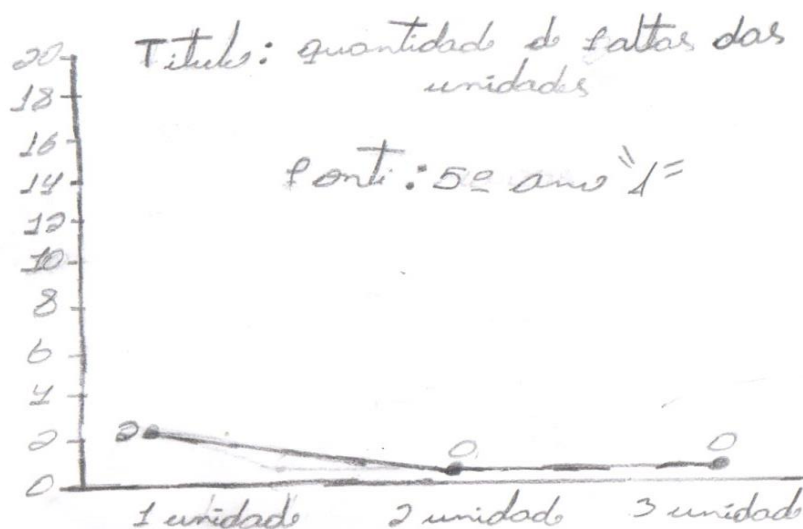 Titulo: quantidade de faltas das
unidades
fonte: 5º ano "1"
20
18
16
14
12
10
8
6
4
2
0
2
0
0
1 unidade
2 unidade
3 unidade